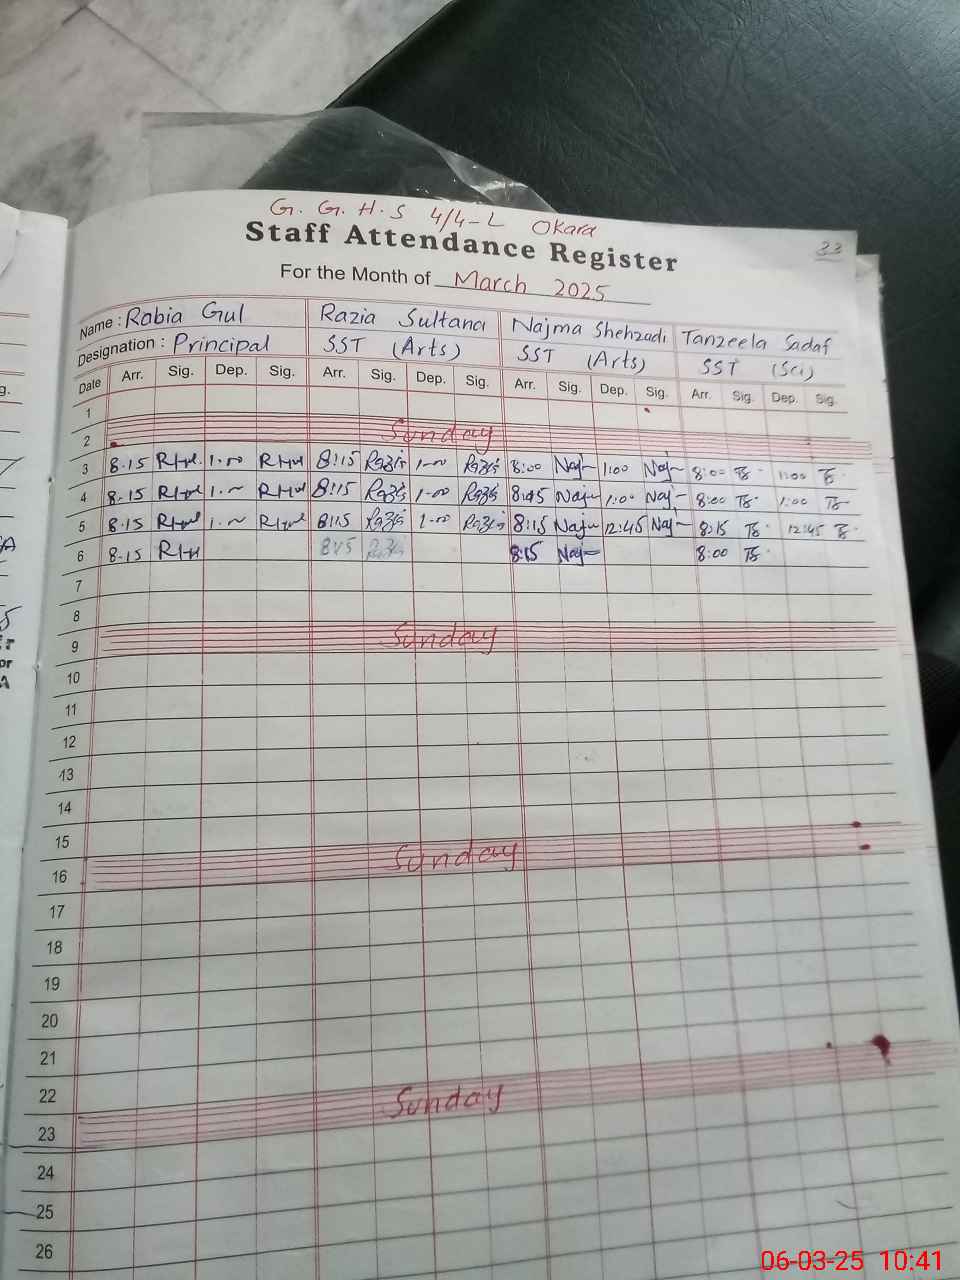 G. G. H. S 4/4-L Okara
Staff Attendance Register
33
For the Month of March 2025
Name : Rabia Gul Razia Sultana Najma Shehzadi Tanzeela Sadaf
Designation : Principal SST (Arts) SST (Arts) SST (Sci)
Date Arr. Sig. Dep. Sig. Arr. Sig. Dep. Sig. Arr. Sig. Dep. Sig. Arr. Sig. Dep. Sig.
1
2 Sunday
3 8.15 1.00 8:15 Razia 1-00 Razia 8:00 Naj 1:00 Naj 8:00 TS 1:00 TS
4 8.15 8:15 Razia 1-00 Razia Naj 1:00 Naj 8:00 TS 1:00 TS
5 8.15 8:15 Razia 1-00 Razia 8:15 Naj 12:45 Naj 8:15 TS 12:45 TS
6 8.15 8:15 Razia 8:15 Naj 8:00 TS
7
8
9 Sunday
10
11
12
13
14
15
16 Sunday
17
18
19
20
21
22
23 Sunday
24
25
26
06-03-25 10:41